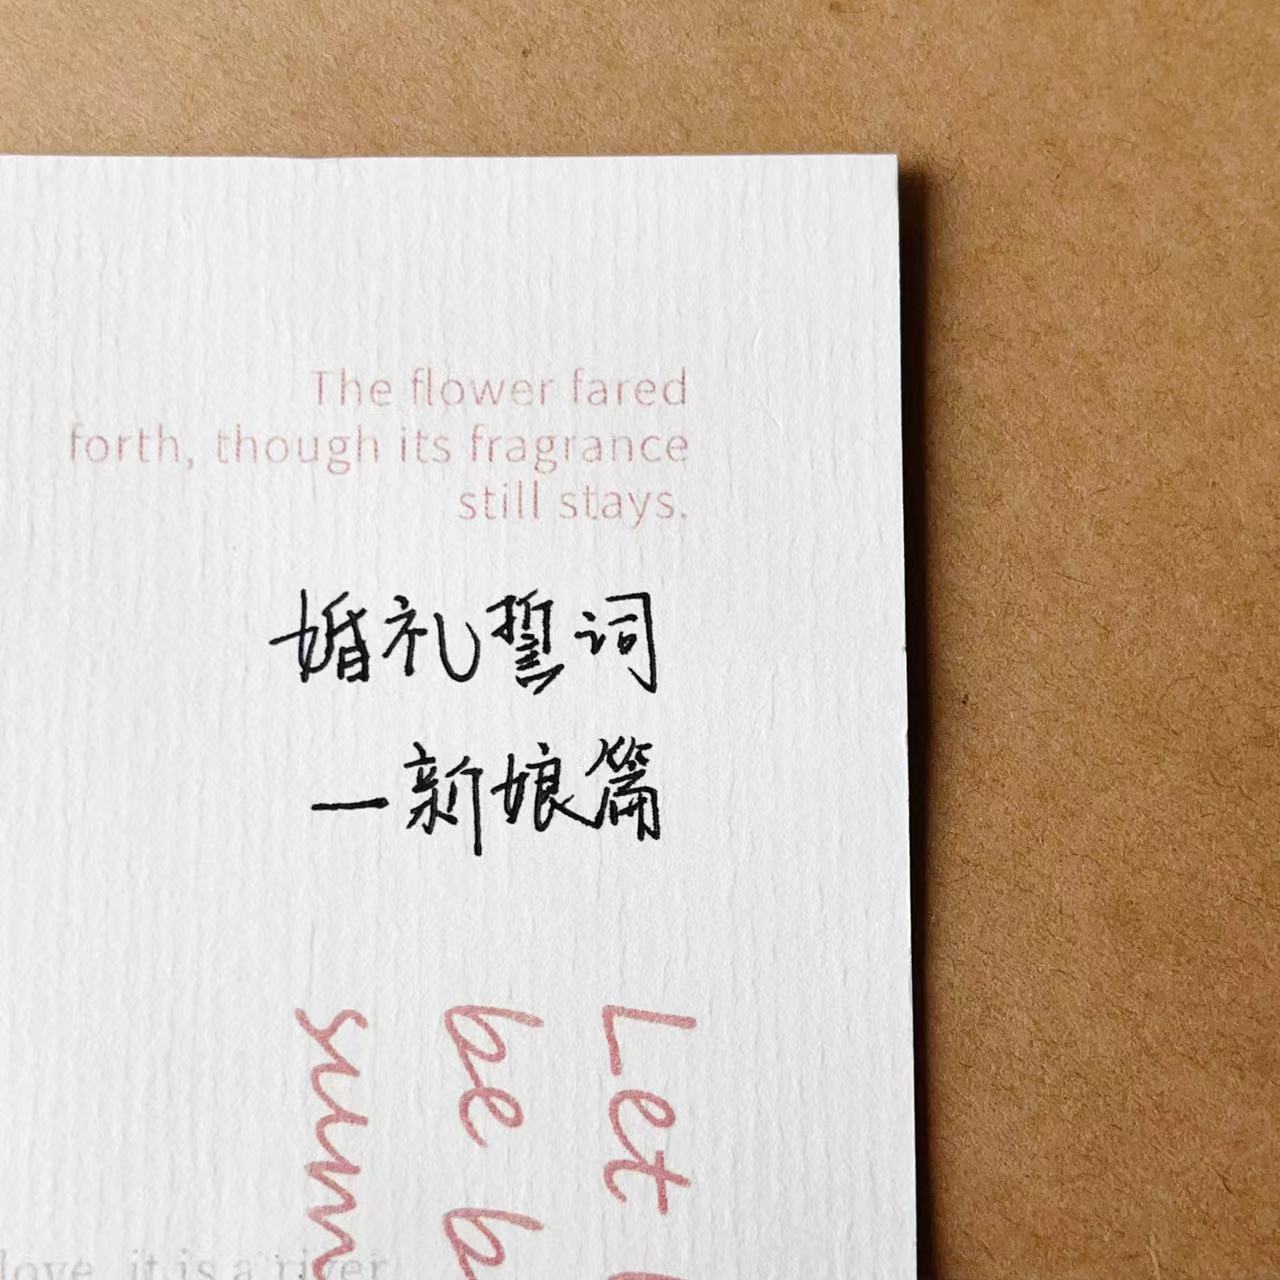 The flower fared
forth, though its fragrance
still stays.
婚礼誓词
—新娘篇
Let
be b
sum
love, it is a river